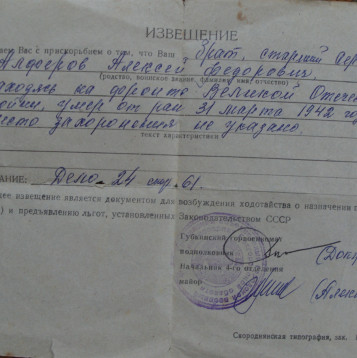 ИЗВЕЩЕНИЕ
Вас с прискорбием о том, что Ваш брат, старший
Алферов Алексей Федорович.
(родство, воинское звание, фамилия, имя, отчество)
находясь на фронте Великой
умер от ран 31 марта 1942
место захоронения не указано.
текст характеристики
Дело-24 стр. 61.
извещение является документом для возбуждения ходатайства о назначении
) и предъявлению льгот, установленных Законодательством СССР
Губкинский горвоенком
подполковник
Начальник 4-го отделения
майор
Скороднянская типография, зак.